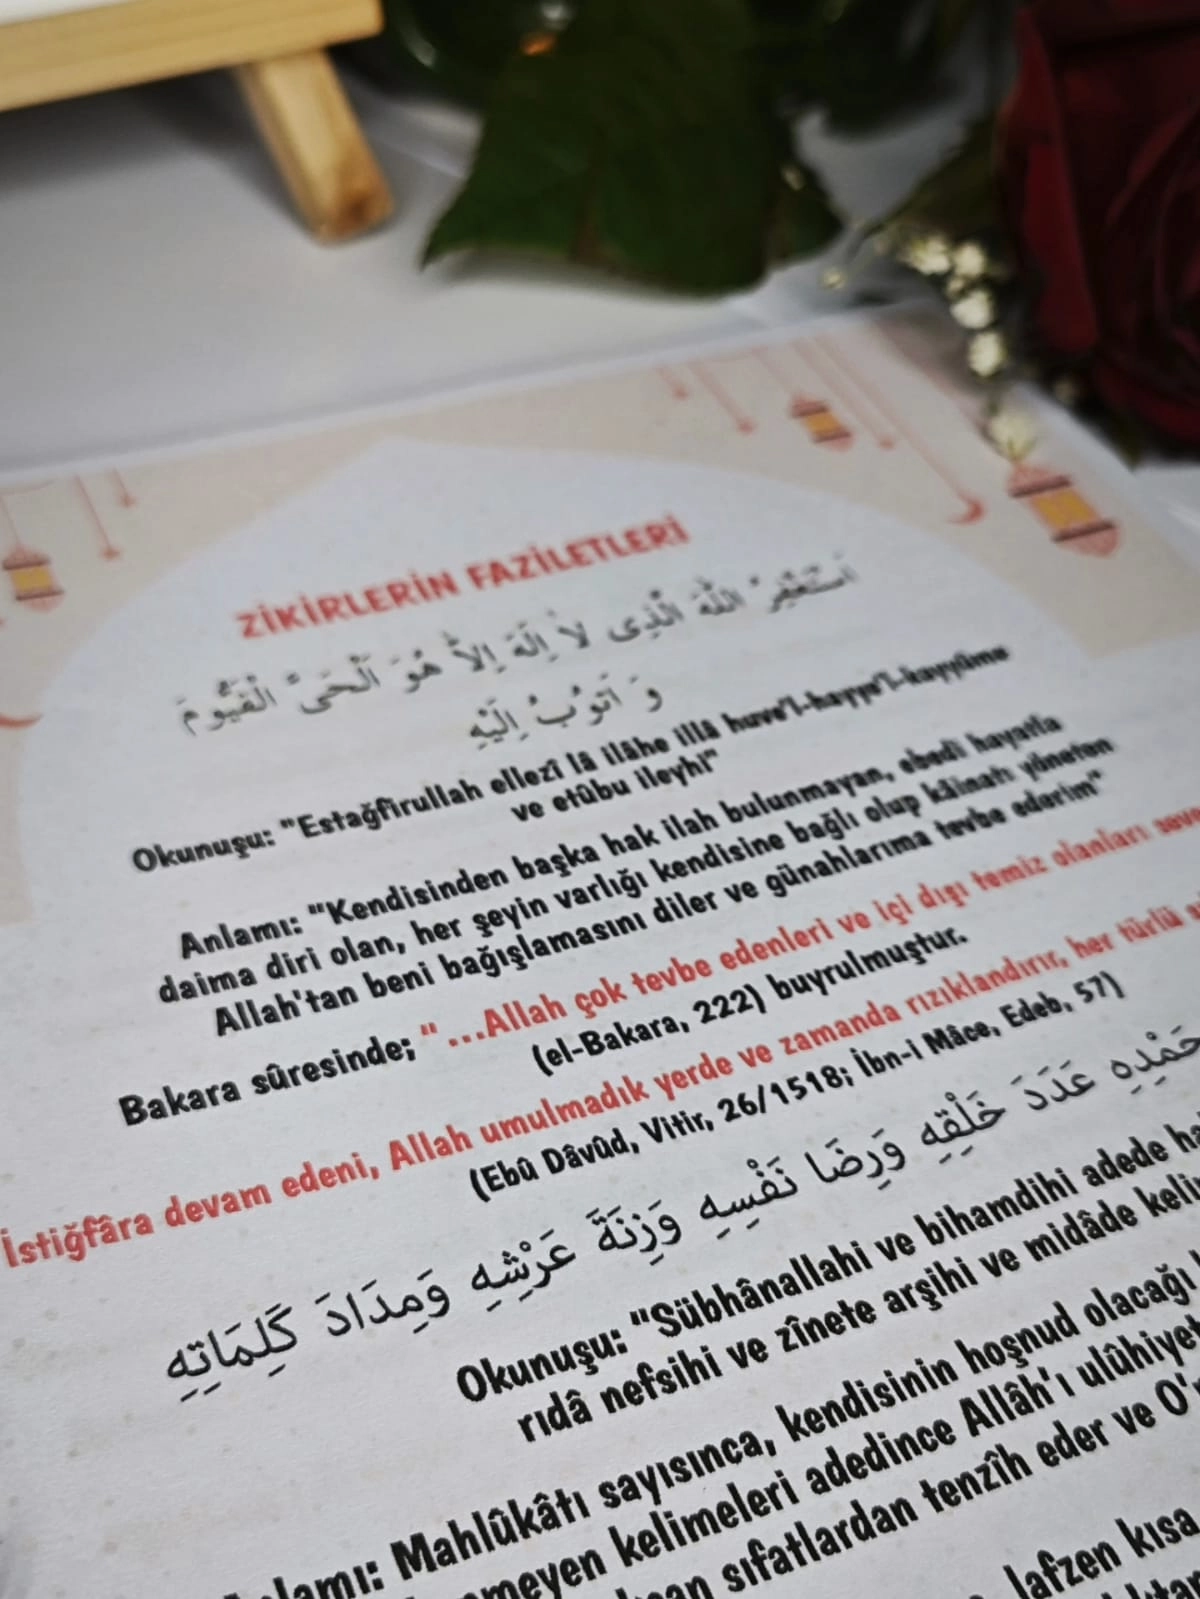 ZİKİRLERİN FAZİLETLERİ
اَسْتَغْفِرُ اللّٰهَ الَّذِى لاَ اِلَهَ اِلاَّ هُوَ الْحَىَّ الْقَيُّومَ
وَ اَتُوبُ اِلَيْهِ
Okunuşu: "Estağfirullah ellezî lâ ilâhe illâ huve'l-hayye'l-kayyûme
ve etûbu ileyhi"
Anlamı: "Kendisinden başka hak ilah bulunmayan, ebedî hayatla
daima diri olan, her şeyin varlığı kendisine bağlı olup kâinatı yöneten
Allah'tan beni bağışlamasını diler ve günahlarıma tevbe ederim"
Bakara sûresinde; "...Allah çok tevbe edenleri ve içi dışı temiz olanları
(el-Bakara, 222) buyrulmuştur.
İstiğfâra devam edeni, Allah umulmadık yerde ve zamanda rızıklandırır, her türlü
(Ebû Dâvûd, Vitir, 26/1518; İbn-i Mâce, Edeb, 57)
عَدَدَ خَلْقِهِ وَرِضَا نَفْسِهِ وَزِنَةَ عَرْشِهِ وَمِدَادَ كَلِمَاتِهِ
Okunuşu: "Sübhânallahi ve bihamdihi adede
rıdâ nefsihi ve zînete arşihi ve midâde
Mahlûkâtı sayısınca, kendisinin hoşnud olacağı
kelimeleri adedince Allâh'ı
sıfatlardan tenzîh eder ve
lafzen kısa